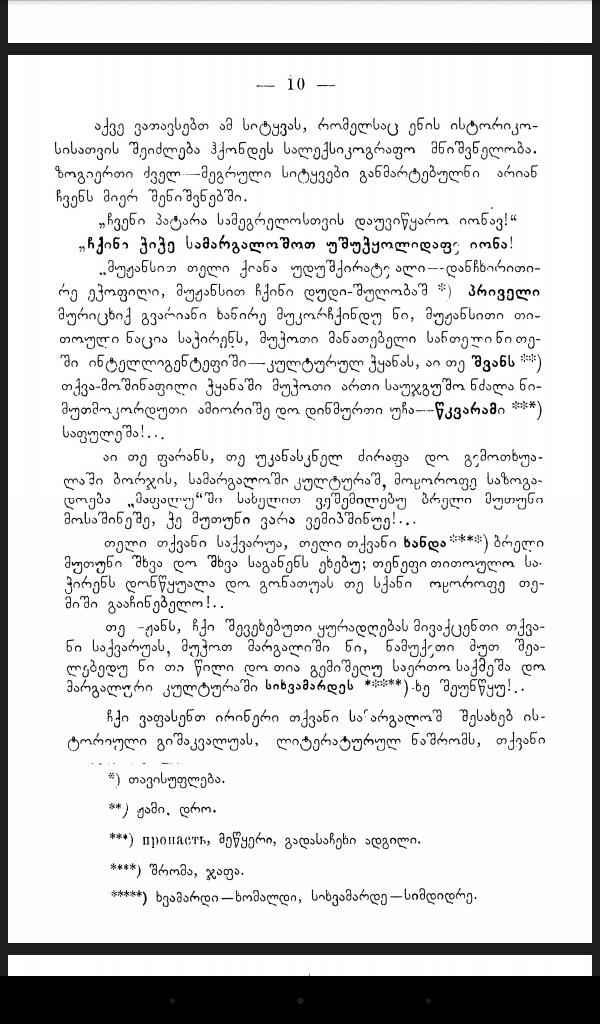 — 10 —
აქვე ვათავსებთ ამ სიტყვას, რომელსაც ენის ისტორიკო-
სისათვის შეიძლება ჰქონდეს სალექსიკოგრაფო მნიშვნელობა.
ზოგიერთი ძველ—მეგრული სიტყვები განმარტებულნი არიან
ჩვენს მიერ შენიშვნებში.
„ჩვენი პატარა სამეგრელოსთვის დაუვიწყარო იონავ!“
„ჩქინი ჭიჭე სამარგალოშოთ უშუჭყოლიდაფე იონა!
„მუჟანსით თელი ქიანა უდუშქირატე ალი—დანჩხირითი-
რე ეჸოფილი, მუჟანსით ჩქინი დუდი-შულობაშ *) პრიველი
მურიცხიქ გვარიანი ხანირე მუკორჩქინდუ ნი, მუჟანსითი თი-
თოული ნაცია საჭირენს, მუჭოთი მანათებელი სანთელი ნი თე-
ში ინტელლიგენტეფიში—კულტურულ ჭყანას, აი თე შვანს **)
თქვა-მოშინაფილი ჭყანაში მუჭოთი ართი საუჯგუშო ნძალა ნი-
მუთმოკორდუთი ამიორიშე დო დინმურთი უჩა—წკვარამი ***)
საფულეშა!...
აი თე ფარანს, თე უკანასკნელ ძირაფა დო გემოთხუა-
ლაში ბორჯის, სამარგალოში კულტურაშ, მოჸოროფე საზოგა-
დოება „მაფალუ“ში სახელით ვეშემილებუ ბრელი მუთუნი
მოსაშინეშე, ჭე მუთუნი ვარა ვემიბშინუე!...
თელი თქვანი საქვარუა, თელი თქვანი ხანდა****) ბრელი
მუთუნი შხვა დო შხვა საგანენს ეხებუ; თენეფი თითოულო სა-
ჭირენს დონწყუალა დო გონათუას თე სქანი ოჸოროფე თე-
მიში გააჩინებელო!..
თე -ჟანს, ჩქი შევეხებუთი ყურადღებას მივაქცენთი თქვა-
ნი საქვარუას, მუჭოთ მარგალიში ნი, ნამუქეთი მუთ შეა-
ლებედუ ნი თი წილი დო თია გემიშეღუ საერთო საქმეშა დო
მარგალური კულტურაში სიხვამარდეს *****)-ხე შეუნწყუ!..
ჩქი ვაფასენთ ირინერი თქვანი სამარგალოშ შესახებ ის-
ტორიული გიშაკვალუას, ლიტერატურულ ნაშრომს, თქვანი
*) თავისუფლება.
**) ჟამი, დრო.
***) пропасть, მეწყერი, გადასაჩეხი ადგილი.
****) შრომა, ჯაფა.
*****) ხვამარდი—ხომალდი, სიხვამარდე—სიმდიდრე.